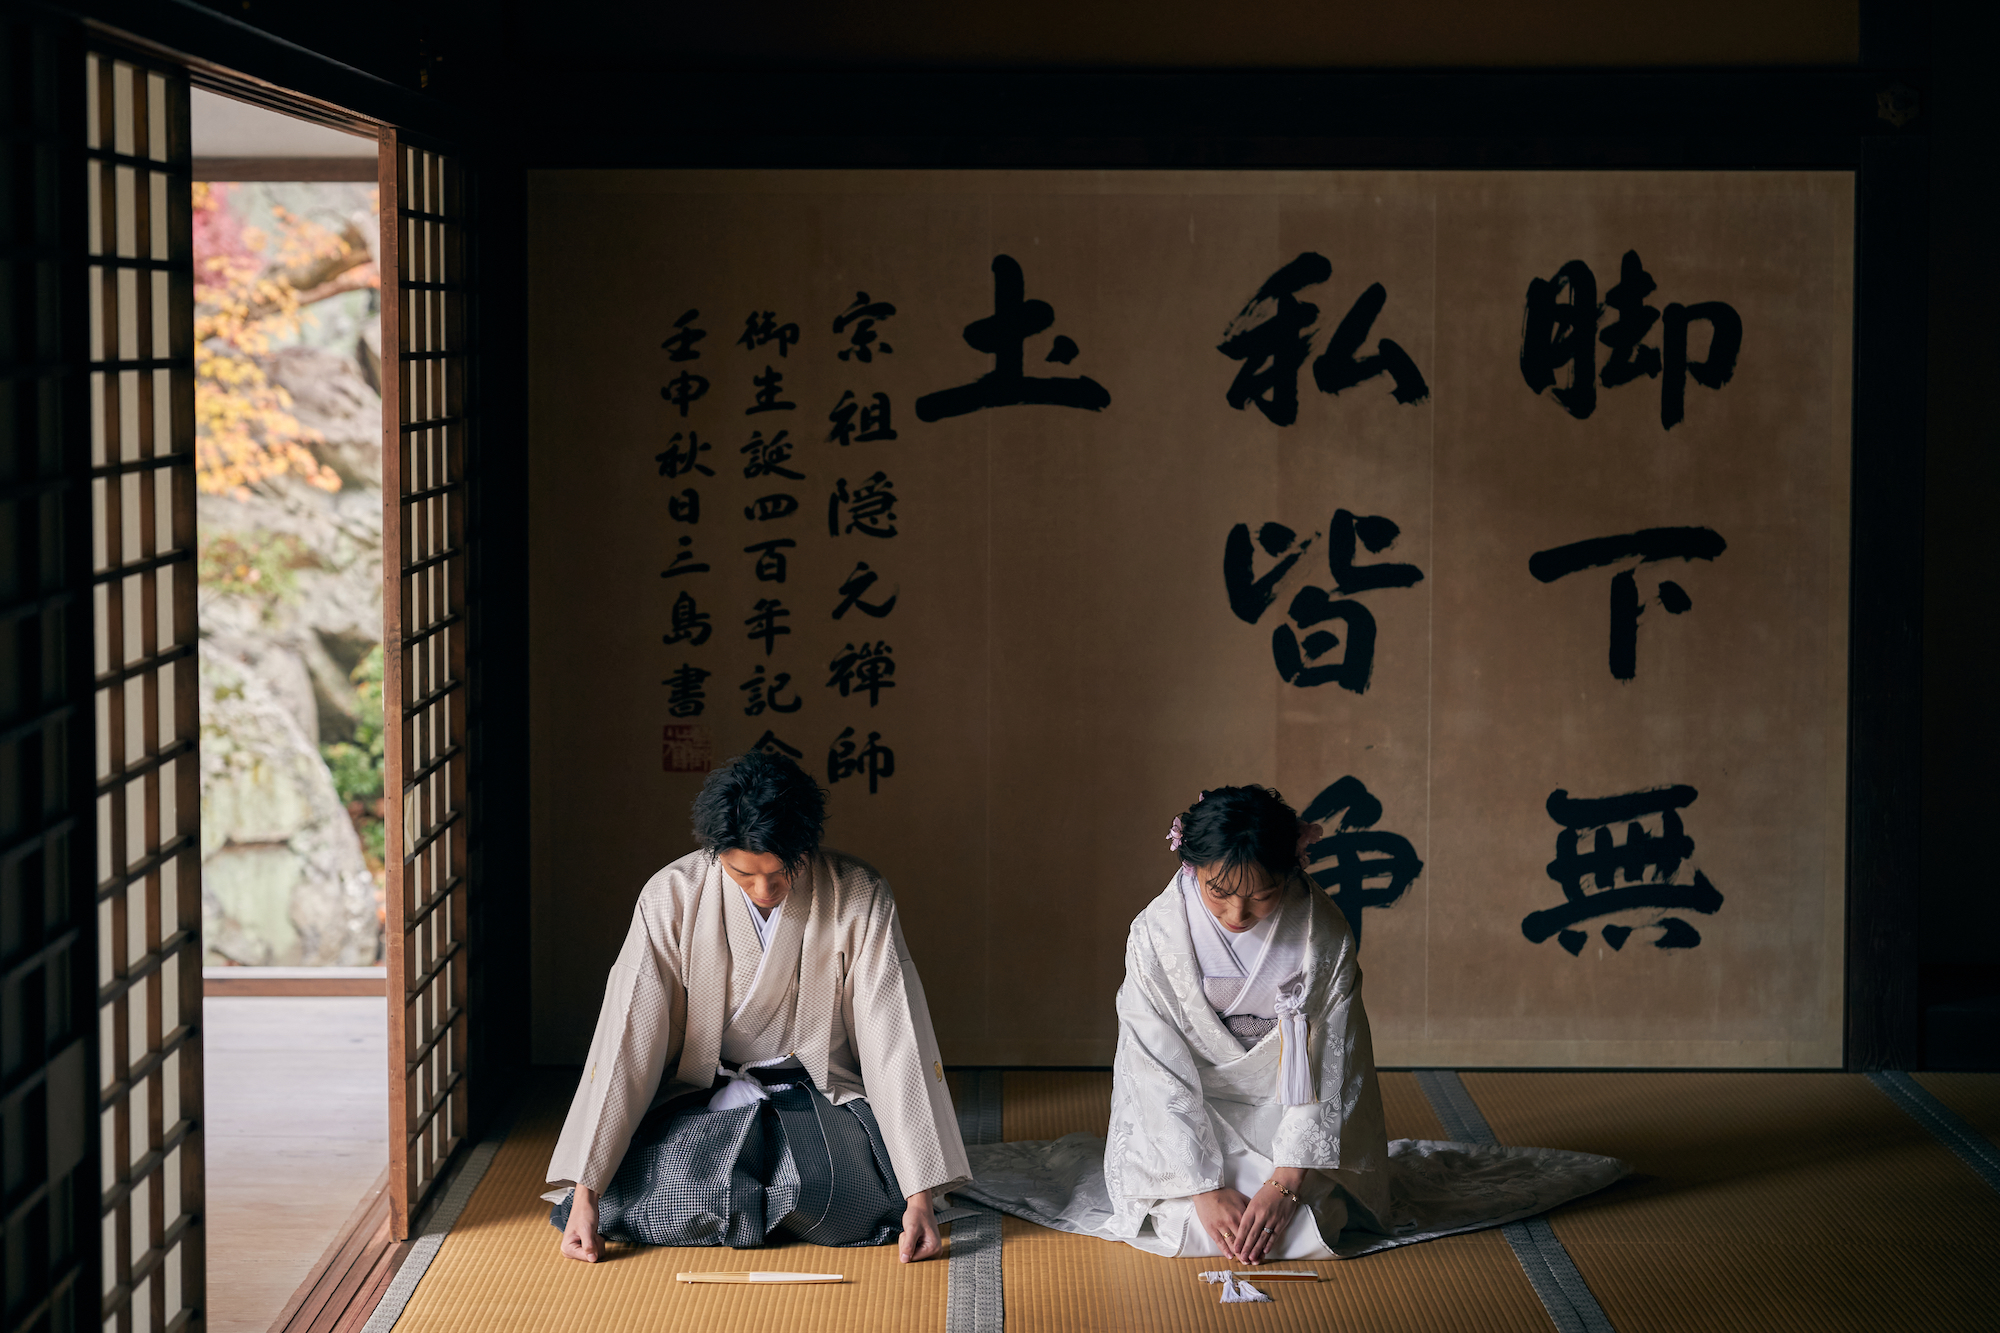 脚下無
私皆浄
土
宗祖隠元禅師
御生誕四百年記念
壬申秋日三島書